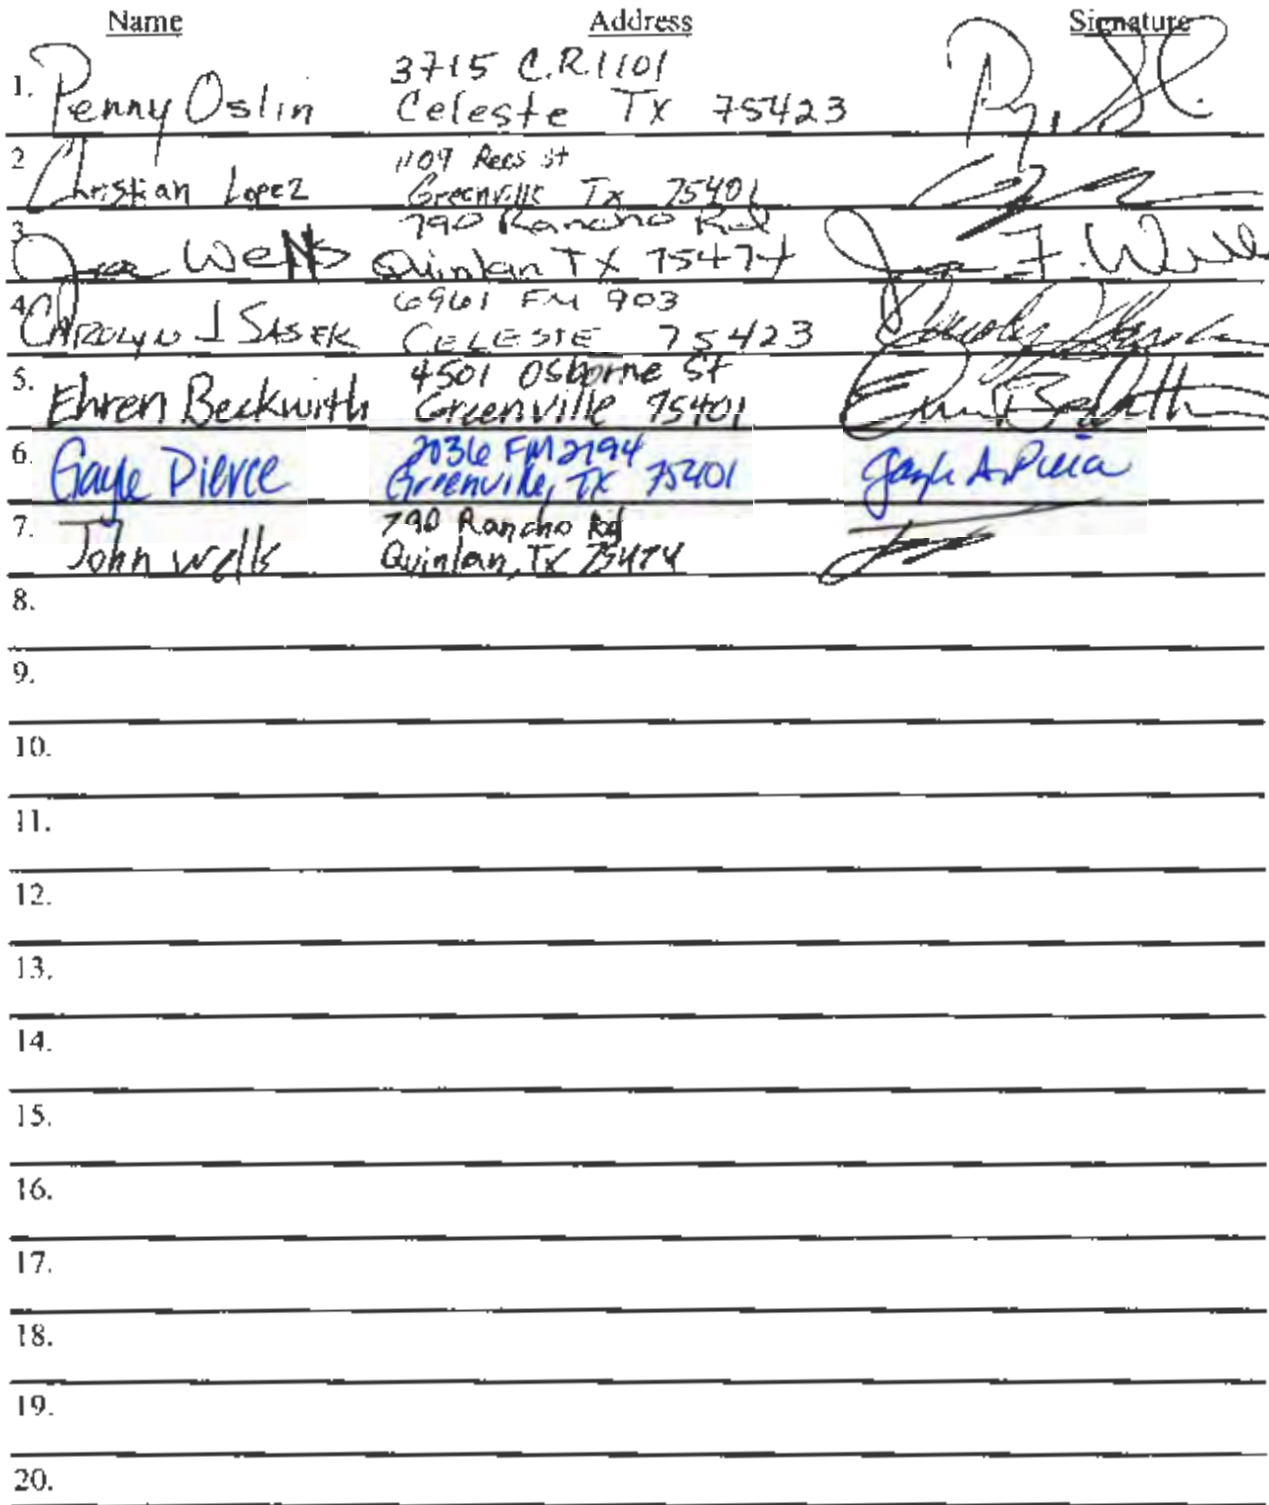 Name Address Signature
1. Penny Oslin 3715 C.R.1101
Celeste TX 75423
2 Christian Lopez 1109 Rees st
Greenville Tx 75401
3 Joe Wells 790 Rancho Rd
Quinlan TX 75474 Joe F. Wells
4. CAROLYN J SASEK 6961 FM 903
CELESTE 75423
5. Ehren Beckwith 4501 Osborne St
Greenville 75401
6. Gayle Pierce 2036 FM 2194
Greenville, TX 75401 Gayle A. Pierce
7. John Wells 790 Rancho Rd
Quinlan, Tx 75474
8.
9.
10.
11.
12.
13.
14.
15.
16.
17.
18.
19.
20.